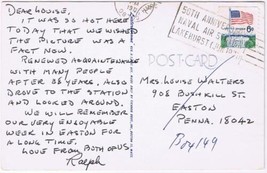 DEAR LOUISE,
IT WAS SO HOT HERE
TODAY THAT WE WISHED
THE PICTURE WAS A
FACT NOW.
RENEWED ACQUAINTANCE
WITH MANY PEOPLE
AFTER 38 YEARS. ALSO
DROVE TO THE STATION
AND LOOKED AROUND.
WE WILL REMEMBER
OUR VERY ENJOYABLE
WEEK IN EASTON FOR
A LONG TIME.
LOVE FROM BOTH OF US
Ralph
50TH ANNIVER
NAVAL AIR S
LAKEHURST
POST CARD
MRS LOUISE WALTERS
908 BUSHKILL ST.
EASTON
PENNA. 18042
Box 149